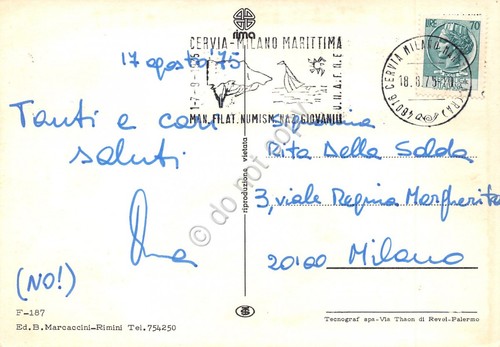 rima
17 agosto '75
Tanti e cari
saluti
(NO!)
F-187
Ed. B. Marcaccini-Rimini Tel. 754250
CERVIA-MILANO MARITTIMA
MAN. FILAT. NUMISM. NAZ. GIOVANILI
riproduzione vietata
do not copy
LIRE 70
CERVIA MILANO
18.8.75
48016
Signorina
Rita Della Salda
3, viale Regina Margherita
20100 Milano
Tecnograf spa-Via Thaon di Revel-Palermo